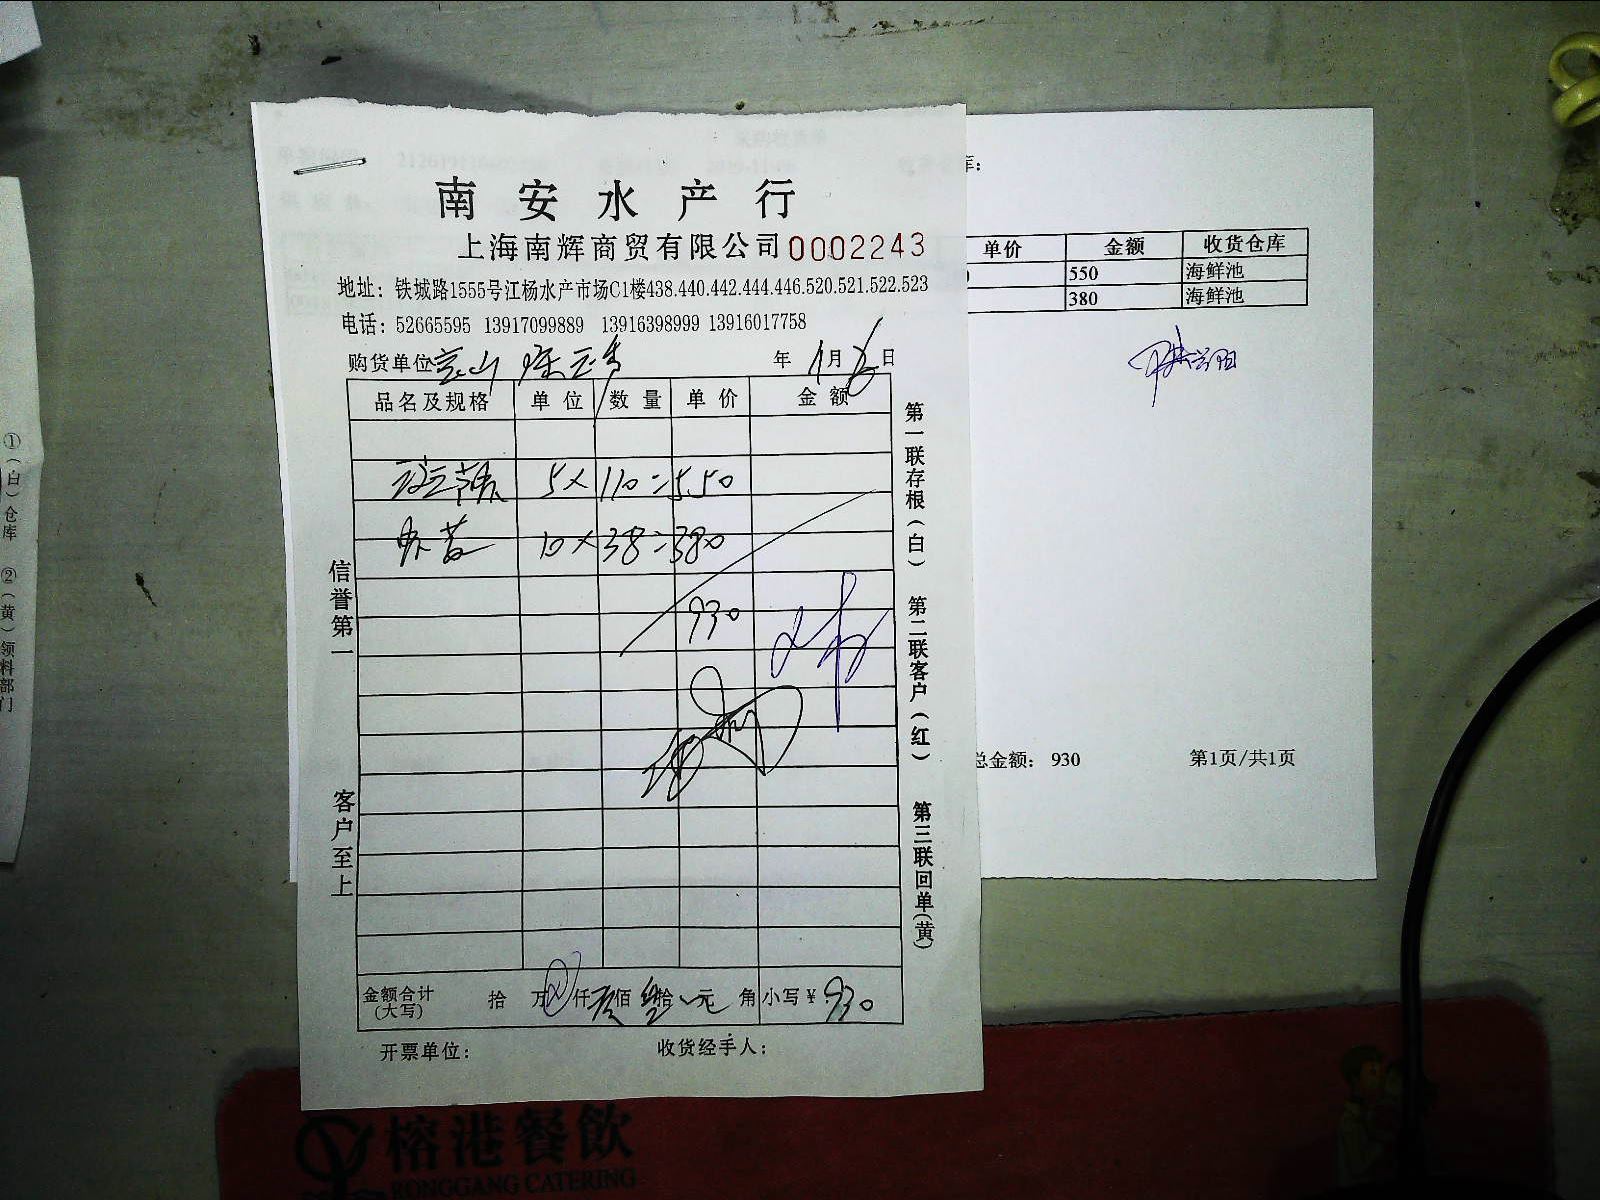 南安水产行
上海南辉商贸有限公司 0002243
地址：铁城路1555号江杨水产市场C1楼438.440.442.444.446.520.521.522.523
电话：52665595 13917099889 13916398999 13916017758
购货单位 宝山 年 11月6日
品名及规格 单位 数量 单价 金额
5× 110=550
10×38=380
930
信誉第一
客户至上
第一联存根（白） 第二联客户（红） 第三联回单（黄）
金额合计（大写） 拾 万 仟 玖佰 叁拾 元 角 小写￥ 930
开票单位： 收货经手人：
库：
单价 金额 收货仓库
550 海鲜池
380 海鲜池
总金额： 930 第1页/共1页
①（白）仓库 ②（黄）领料部门
榕港餐飲
RONGGANG CATERING